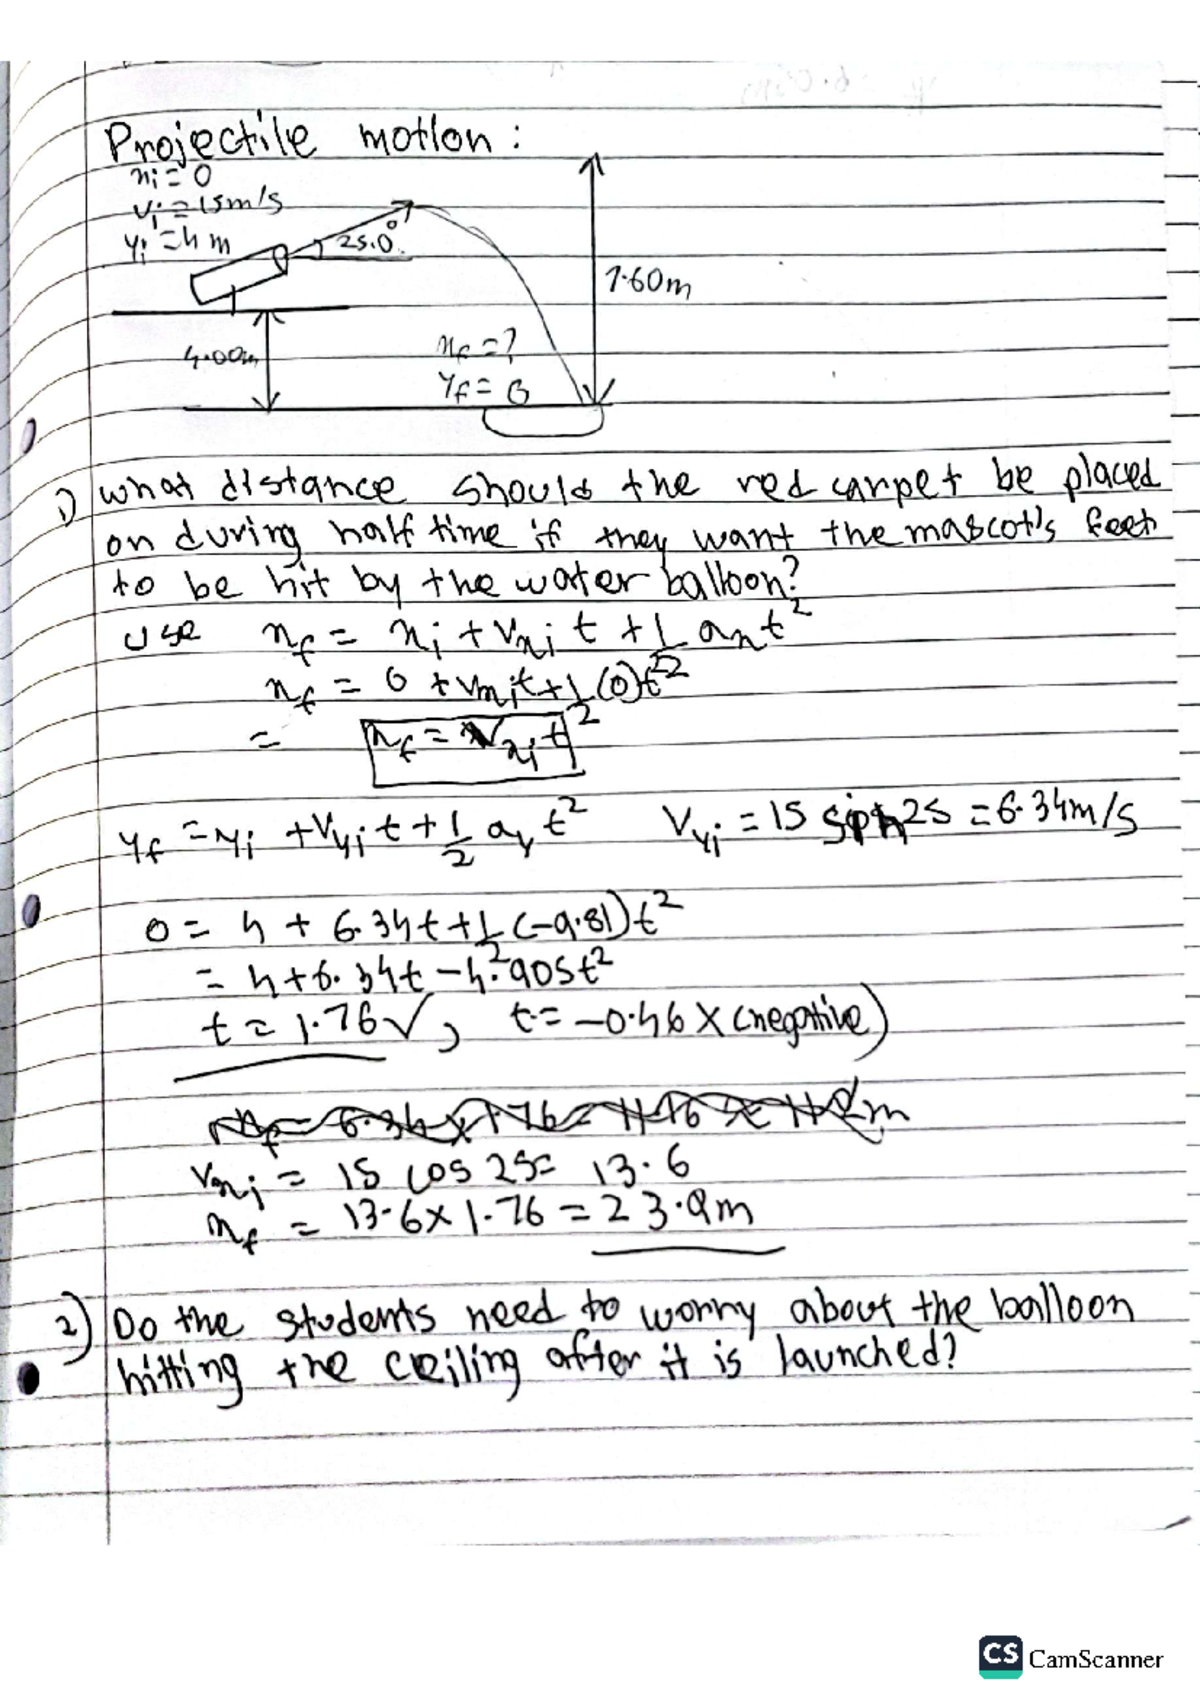 Projectile motion :
xi = 0
vi = 15m/s
yi = 4 m
25.0°
7.60m
4.00m
xf = ?
yf = 0
1) what distance should the red carpet be placed
on during half time if they want the mascot's feet
to be hit by the water balloon?
use xf = xi + Vxi t + 1/2 ax t²
xf = 0 + Vxi t + 1/2 (0)t²
= xf = Vxi t ²
yf = yi + Vyi t + 1/2 ay t² Vyi = 15 sin 25 = 6.34m/s
0 = 4 + 6.34t + 1/2 (-9.81)t²
= 4 + 6.34t - 4.905t²
t = 1.76 ✓, t = -0.46 × (negative)
xf = 6.34 × 1.76 = 11.16 ≈ 11.2m
Vxi = 15 cos 25 = 13.6
xf = 13.6 × 1.76 = 23.9m
2) Do the students need to worry about the balloon
hitting the ceiling after it is launched?
CS CamScanner